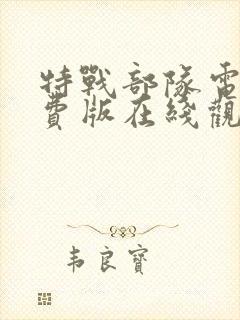 特戰部隊電
費版在綫觀
韦良寶